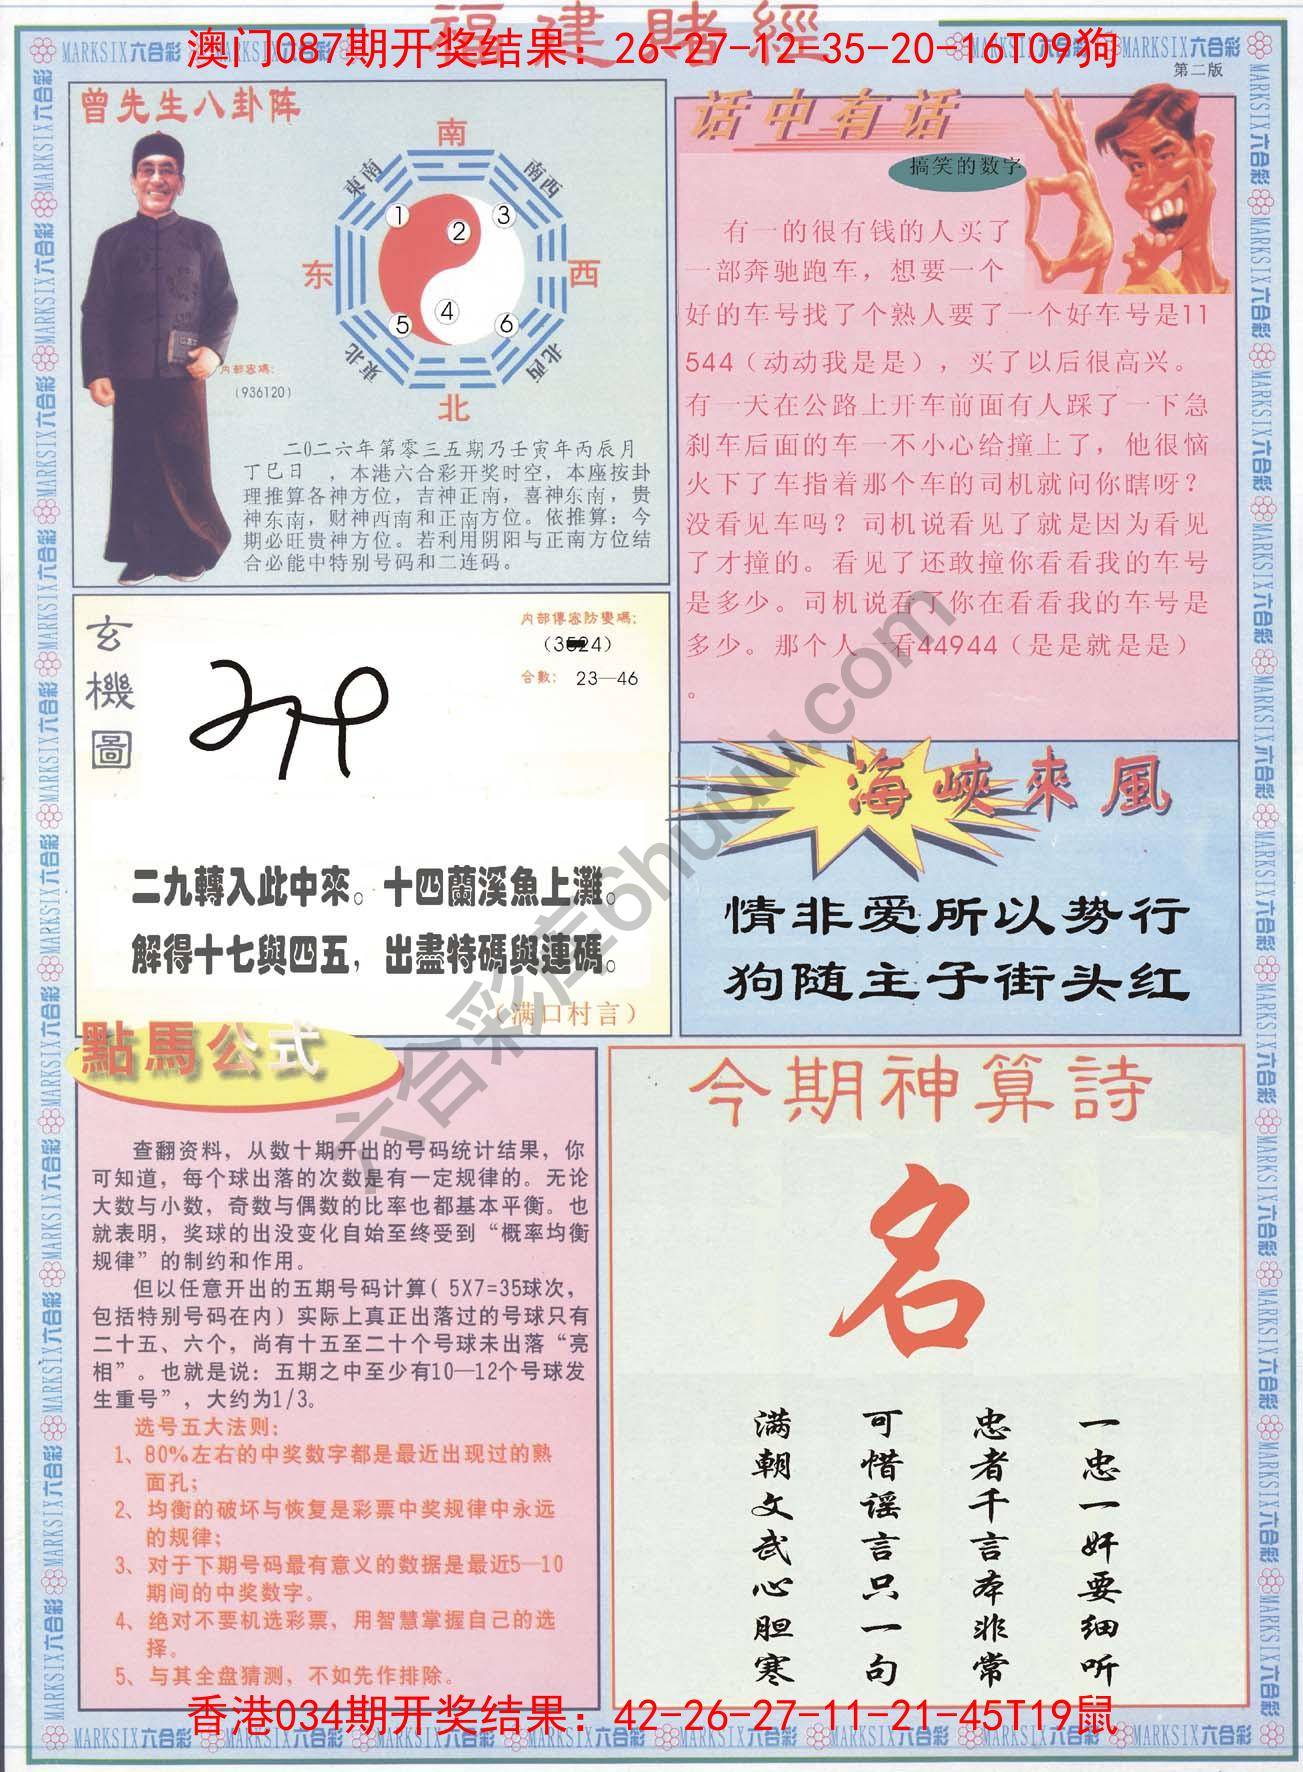 福建賭經
澳门087期开奖结果：26-27-12-35-20-16T09狗
MARKSIX六合彩
第二版
曾先生八卦阵
南
東南
南西
1
2
3
东
西
4
5
6
東北
北西
北
内部密碼：
（936120）
二0二六年第零三五期乃壬寅年丙辰月
丁巳日　，本港六合彩开奖时空，本座按卦
理推算各神方位，吉神正南，喜神东南，贵
神东南，财神西南和正南方位。依推算：今
期必旺贵神方位。若利用阴阳与正南方位结
合必能中特别号码和二连码。
话中有话
搞笑的数字
有一的很有钱的人买了
一部奔驰跑车，想要一个
好的车号找了个熟人要了一个好车号是11
544（动动我是是），买了以后很高兴。
有一天在公路上开车前面有人踩了一下急
刹车后面的车一不小心给撞上了，他很恼
火下了车指着那个车的司机就问你瞎呀？
没看见车吗？司机说看见了就是因为看见
了才撞的。看见了还敢撞你看看我的车号
是多少。司机说看了你在看看我的车号是
多少。那个人一看44944（是是就是是）
。
玄機圖
内部傳密防變碼：
合數： 23—46
二九轉入此中來。十四蘭溪魚上灘。
解得十七與四五，出盡特碼與連碼。
（满口村言）
海峽來風
情非爱所以势行
狗随主子街头红
點馬公式
查翻资料，从数十期开出的号码统计结果，你
可知道，每个球出落的次数是有一定规律的。无论
大数与小数，奇数与偶数的比率也都基本平衡。也
就表明，奖球的出没变化自始至终受到“概率均衡
规律”的制约和作用。
但以任意开出的五期号码计算（5X7=35球次，
包括特别号码在内）实际上真正出落过的号球只有
二十五、六个，尚有十五至二十个号球未出落“亮
相”。也就是说：五期之中至少有10—12个号球发
生重号”，大约为1/3。
选号五大法则：
1、80%左右的中奖数字都是最近出现过的熟
面孔；
2、均衡的破坏与恢复是彩票中奖规律中永远
的规律；
3、对于下期号码最有意义的数据是最近5—10
期间的中奖数字。
4、绝对不要机选彩票，用智慧掌握自己的选
择。
5、与其全盘猜测，不如先作排除。
今期神算詩
名
一忠一奸要细听
忠者千言本非常
可惜谣言只一句
满朝文武心胆寒
六合彩库6huuu.com
香港034期开奖结果：42-26-27-11-21-45T19鼠